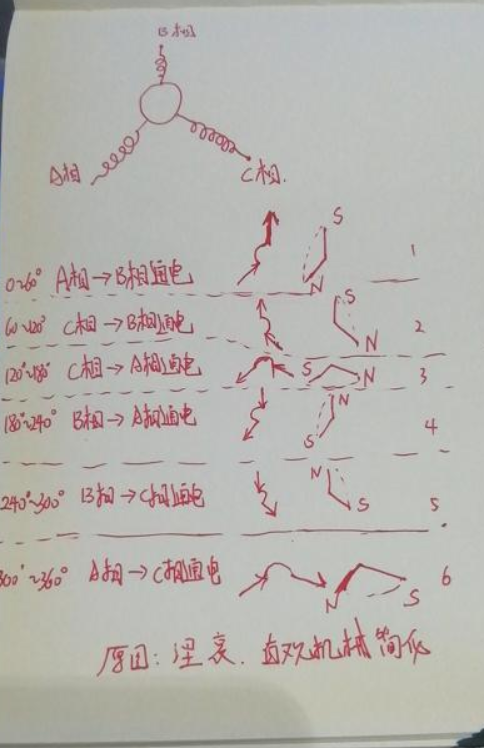 B相
A相
C相.
S
N
0~60° A相→B相通电 1
S
60~120° C相→B相通电 N 2
120°~180° C相→A相通电 S N 3
N
180°~240° B相→A相通电 S 4
N
240°~300° B相→C相通电 S 5
300°~360° A相→C相通电 N S 6
原因:
直观机械简化